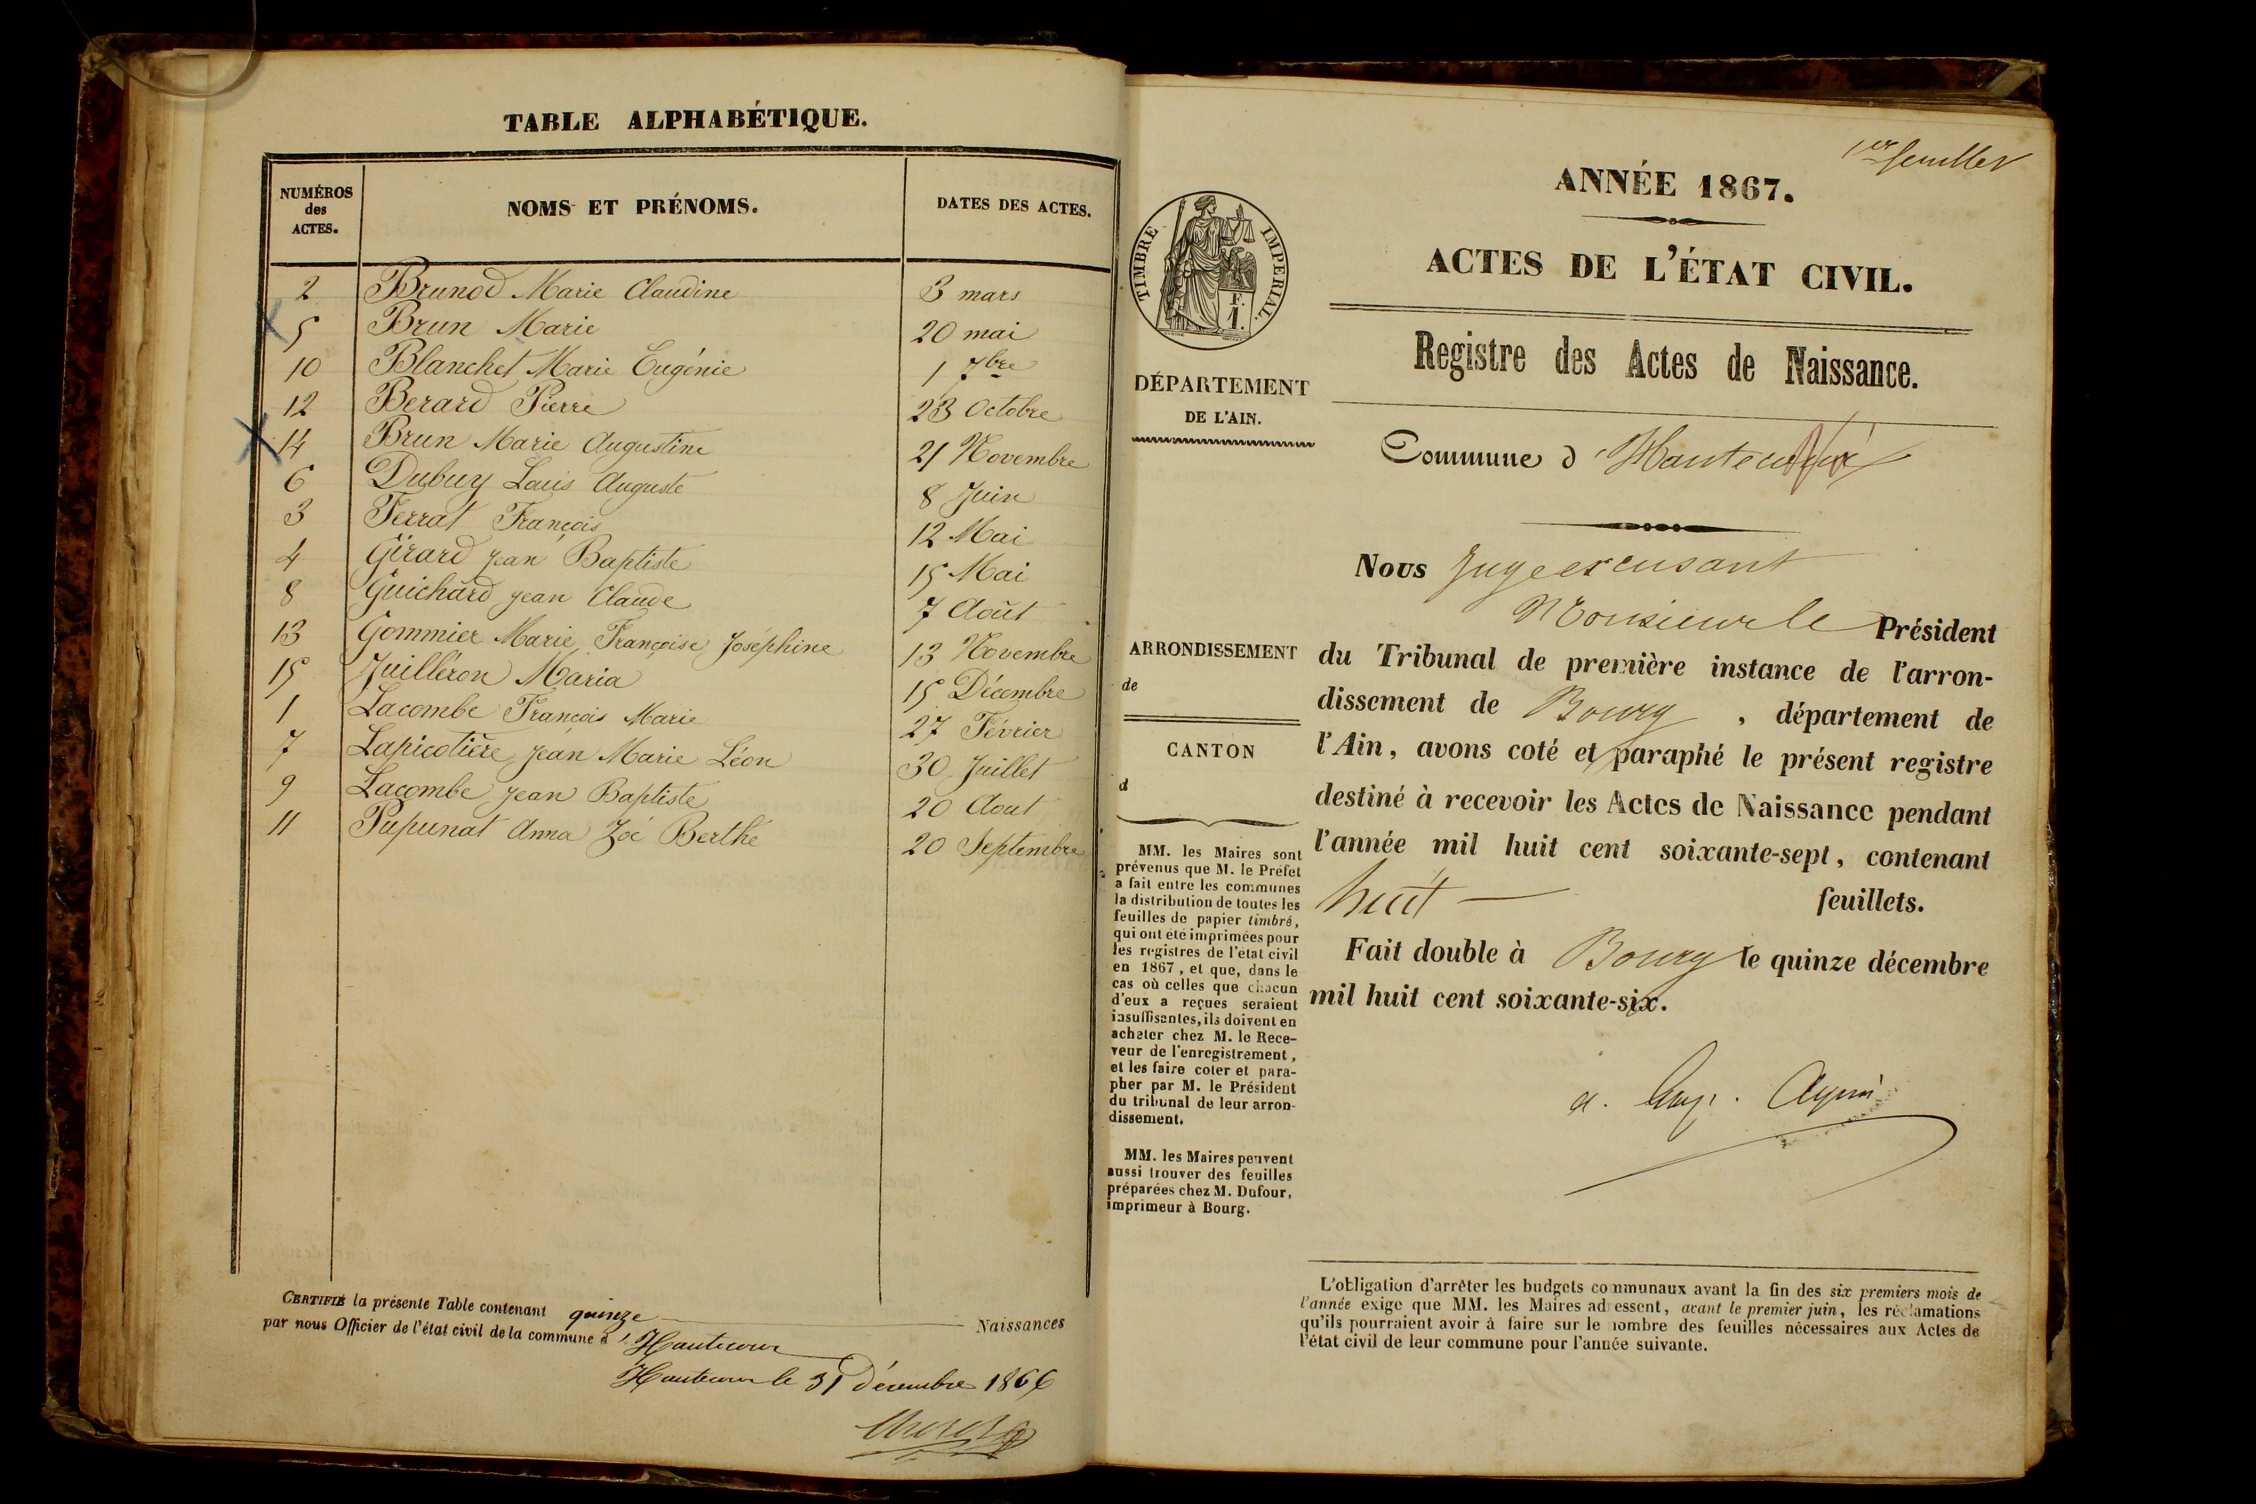 TABLE ALPHABÉTIQUE.
NUMÉROS des ACTES. NOMS ET PRÉNOMS. DATES DES ACTES.
2 Brunod Marie Claudine 3 mars
5 Brun Marie 20 mai
10 Blanchet Marie Eugénie 1 7bre
12 Berard Pierre 23 Octobre
14 Brun Marie Augustine 21 Novembre
6 Dubuy Louis Auguste 8 Juin
3 Ferrat François 12 Mai
4 Girard Jean Baptiste 15 Mai
8 Guichard Jean Claude 7 Août
13 Gommier Marie Françoise Joséphine 13 Novembre
15 Juilléron Maria 15 Décembre
1 Lacombe François Marie 27 Février
7 Lapicotière Jean Marie Léon 30 Juillet
9 Lacombe Jean Baptiste 20 Aout
11 Pupunat Anna Zoé Berthe 20 Septembre
CERTIFIÉ la présente Table contenant quinze Naissances
par nous Officier de l'état civil de la commune d'Hautecour
Hautecour le 31 Décembre 1866
1er feuillet
ANNÉE 1867.
ACTES DE L'ÉTAT CIVIL.
Registre des Actes de Naissance.
TIMBRE IMPERIAL.
F.
1.
DÉPARTEMENT
DE L'AIN.
Commune d'
Nous Juge excusant
Monsieur le Président
ARRONDISSEMENT
de
CANTON
d
du Tribunal de première instance de l'arron-
dissement de Bourg, département de
l'Ain, avons coté et paraphé le présent registre
destiné à recevoir les Actes de Naissance pendant
l'année mil huit cent soixante-sept, contenant
huit feuillets.
Fait double à Bourg le quinze décembre
mil huit cent soixante-six.
MM. les Maires sont
prévenus que M. le Préfet
a fait entre les communes
la distribution de toutes les
feuilles de papier timbré,
qui ont été imprimées pour
les registres de l'état civil
en 1867, et que, dans le
cas où celles que chacun
d'eux a reçues seraient
insuffisantes, ils doivent en
acheter chez M. le Rece-
veur de l'enregistrement,
et les faire coter et para-
pher par M. le Président
du tribunal de leur arron-
dissement.
MM. les Maires peuvent
aussi trouver des feuilles
préparées chez M. Dufour,
imprimeur à Bourg.
L'obligation d'arrêter les budgets communaux avant la fin des six premiers mois de
l'année exige que MM. les Maires adressent, avant le premier juin, les réclamations
qu'ils pourraient avoir à faire sur le nombre des feuilles nécessaires aux Actes de
l'état civil de leur commune pour l'année suivante.